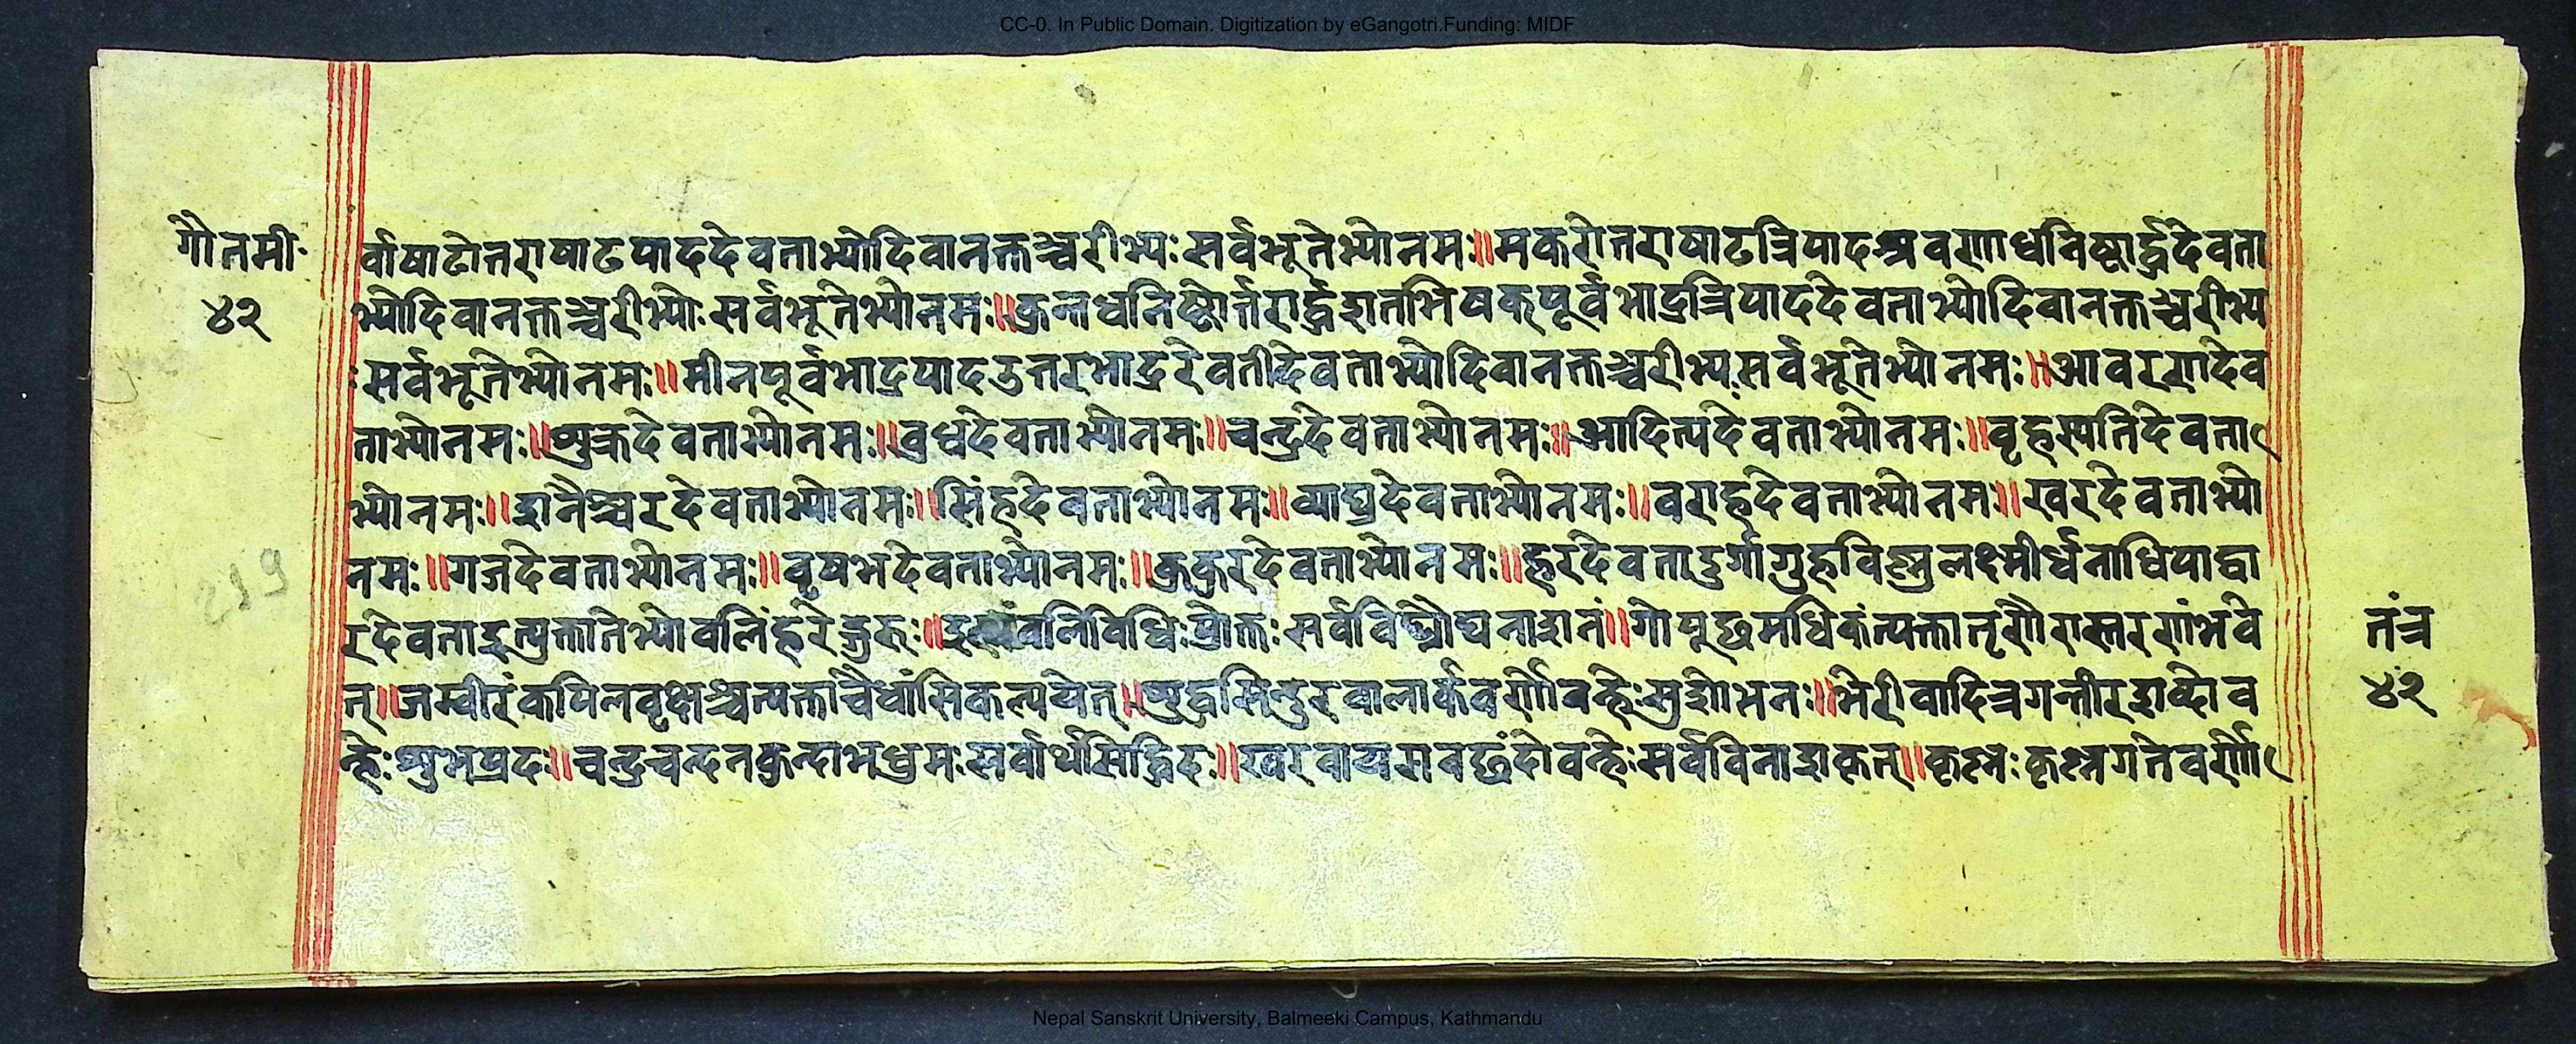 CC-0. In Public Domain. Digitization by eGangotri.Funding: MIDF
गौतमी
४२
र्वाषाटोत्तराषाटपाददेवताभ्योदिवानक्तञ्चरीभ्यः सर्वभूतेभ्योनमः॥मकरोत्तराषाटत्रिपादश्रवणाधनिष्टार्द्धदेवता
भ्योदिवानक्तञ्चरीभ्योः सर्वभूतेभ्योनमः॥कुम्भधनिष्टोर्त्तरार्द्धशतभिषकपूर्वभाद्रत्रिपाददेवताभ्योदिवानक्तञ्चरीभ्य
ःसर्वभूतेभ्योनमः॥मीनपूर्वभाद्रपादउत्तरभाद्ररेवतीदेवताभ्योदिवानक्तञ्चरीभ्यःसर्वभूतेभ्योनमः॥आवरणदेव
ताभ्योनमः॥शुक्रदेवताभ्योनमः॥बुधदेवताभ्योनमः॥चन्द्रदेवताभ्योनमः॥आदित्यदेवताभ्योनमः॥वृहस्पतिदेवता
भ्योनमः॥शनैश्चरदेवताभ्योनमः॥सिंहदेवताभ्योनमः॥व्याघ्रदेवताभ्योनमः॥वराहदेवताभ्योनमः॥खरदेवताभ्यो
नमः॥गजदेवताभ्योनमः॥वृषभदेवताभ्योनमः॥कुकुरदेवताभ्योनमः॥हरदेवतादुर्गागुहविष्णुलक्ष्मीर्धनाधिपाद्वा
रदेवताइत्युक्तातेभ्योवलिंहरेद्गुरुः॥वलिविधिःप्रोक्तःसर्वविघ्नौघनाशनं॥गोपूछमधिकंत्यक्तातृणैरास्तरणंभवे
त्॥जम्वीरंकपिलवृक्षञ्चत्यक्ताचैधांसिकल्पयेत्॥शुद्धसिन्दुरवालार्कवर्णोवन्हेःसुशोभनः॥भेरीवादित्रगम्भीरशब्दोव
न्हेःशुभप्रदः॥चन्द्रचन्दनकुन्दाभधुमःसर्वार्थसिद्धिदः॥खरवायसवछंदोवन्हेःसर्वविनाशकृत्॥कृष्नःकृष्नगतेवर्णो
तंत्र
४२
219
Nepal Sanskrit University, Balmeeki Campus, Kathmandu